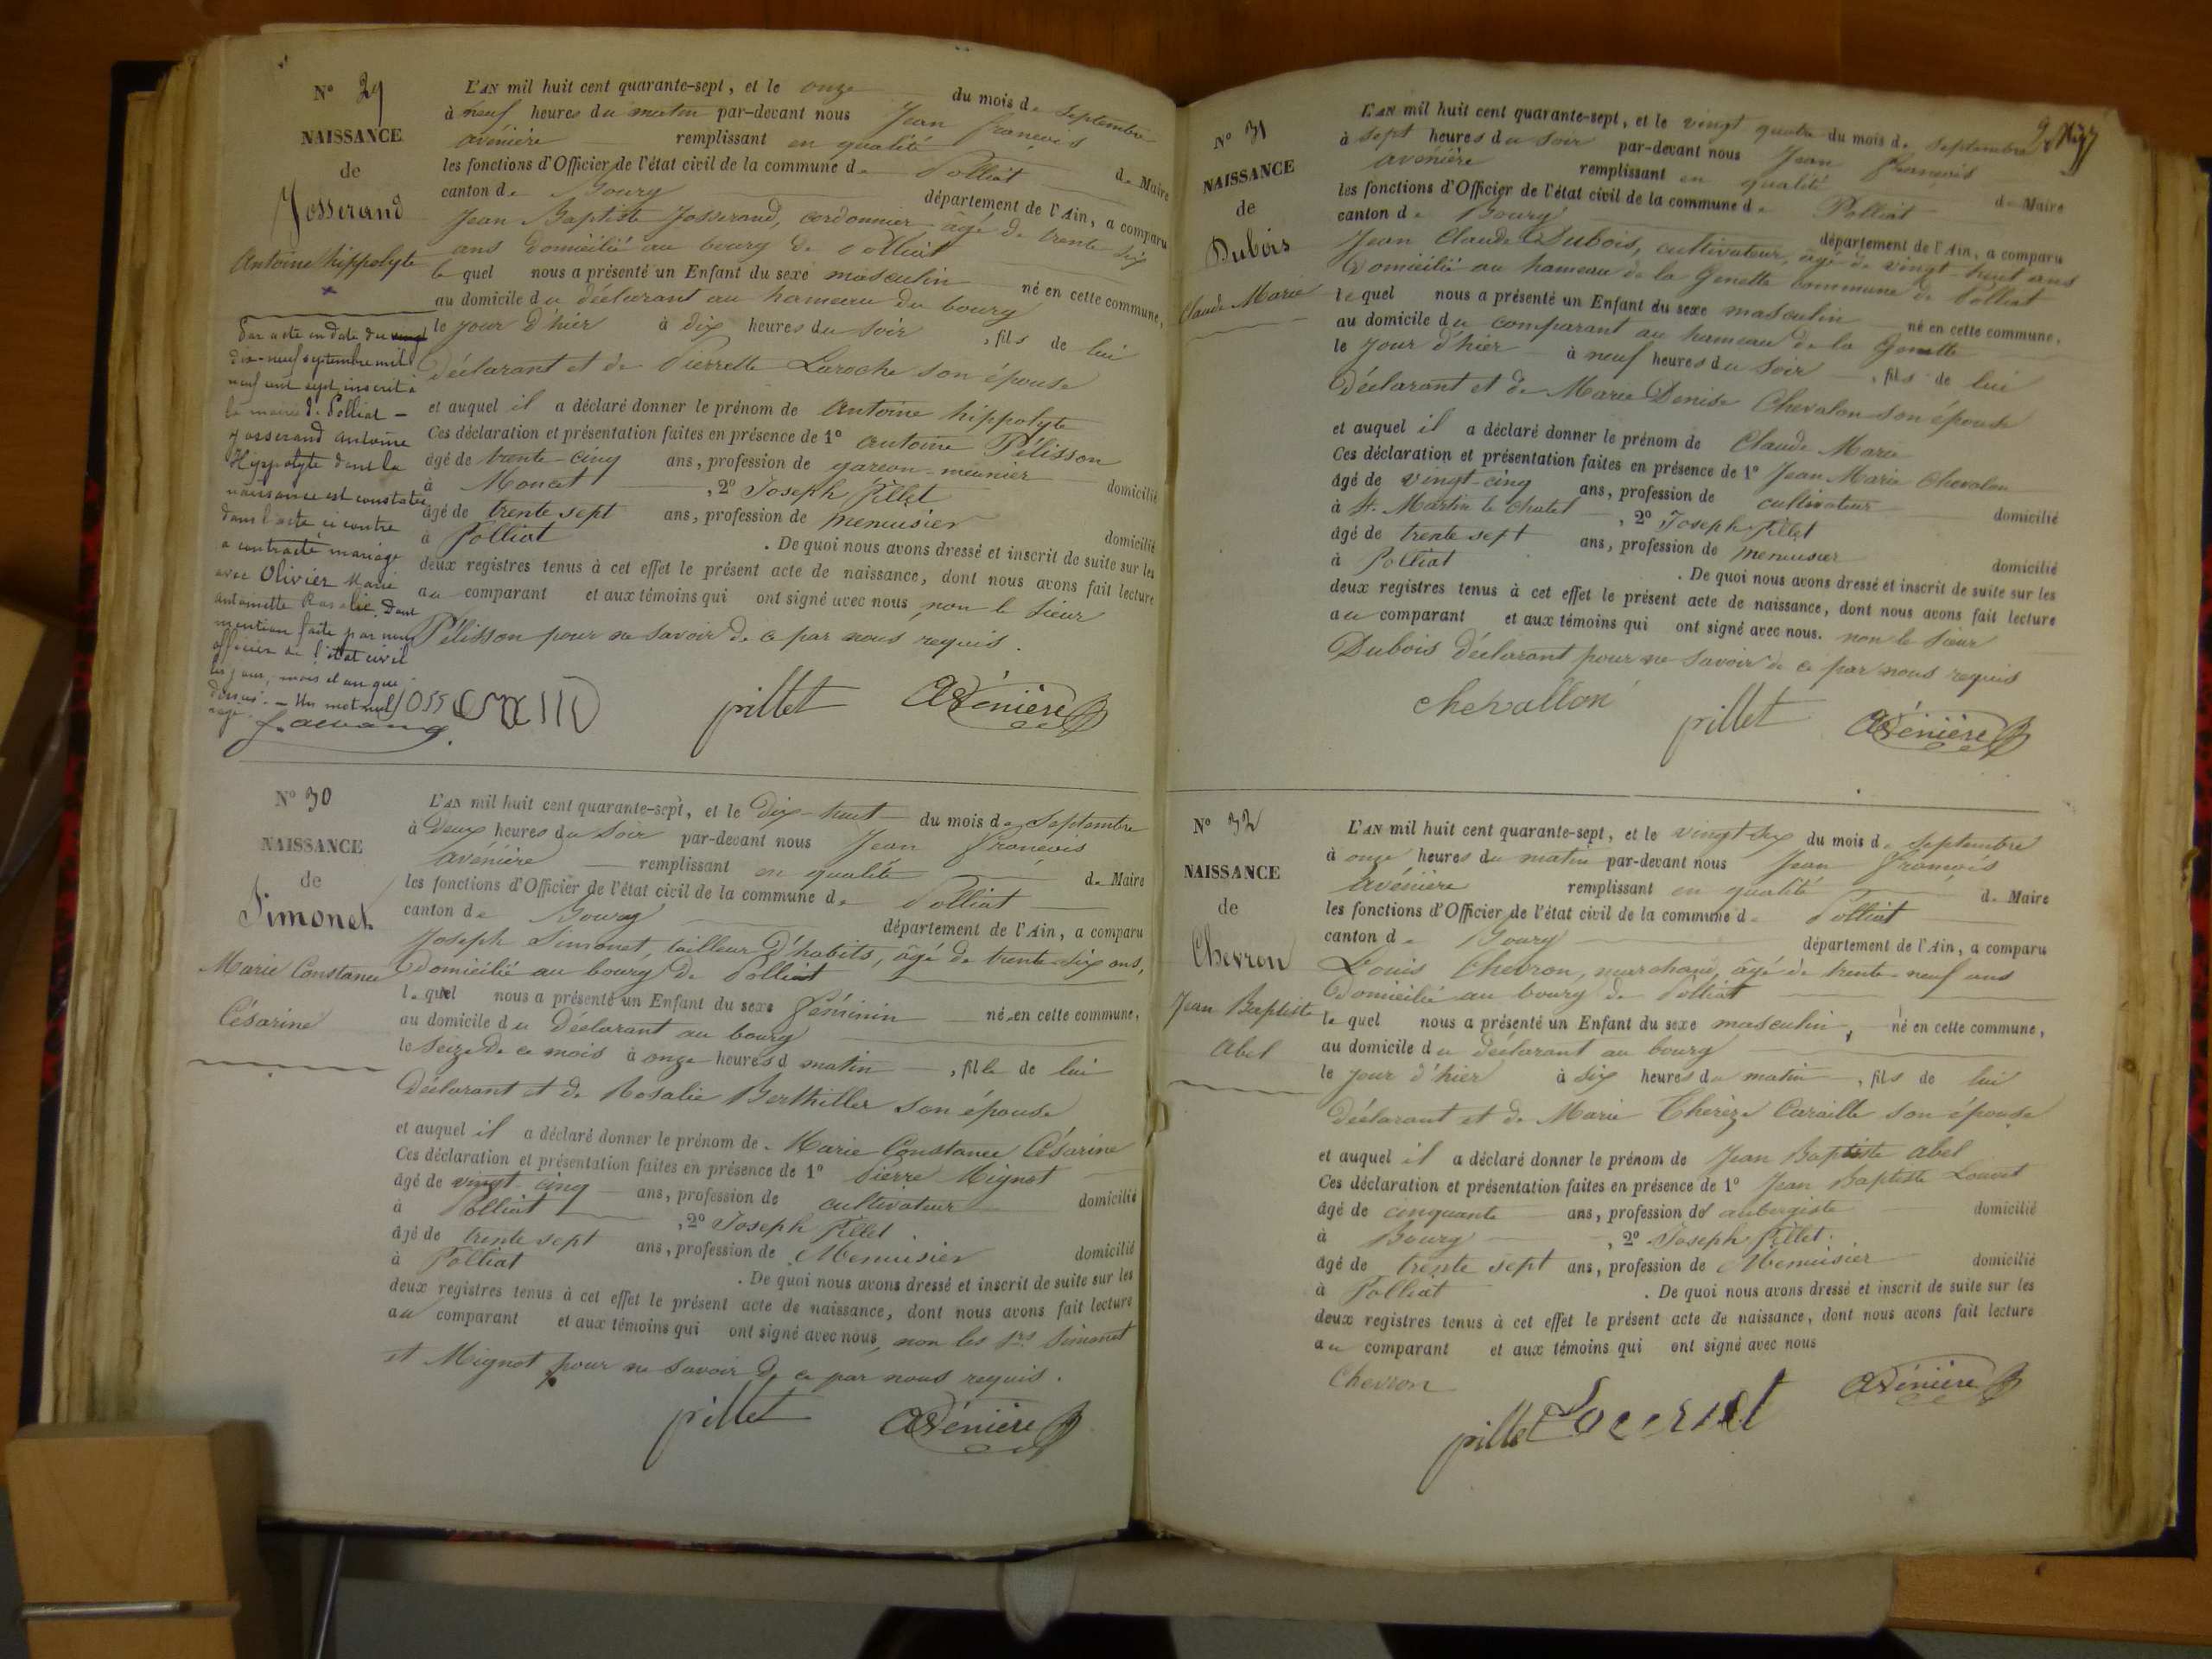 N° 29
NAISSANCE
de
Josserand
Antoine hippolyte
Par acte en date du vingt
dix-neuf septembre mil
neuf cent sept, inscrit à
la mairie de Polliat –
Josserand Antoine
Hyppolyte dont la
naissance est constatée
dans l'acte ci contre
a contracté mariage
avec Olivier Marie
antoinette Rosalie. Dont
mention faite par nous
officier de l'état civil
les jour, mois et an que
dessus. – Un mot nul
L'AN mil huit cent quarante-sept, et le onze du mois de Septembre
à neuf heures du matin par-devant nous Jean françois
avénière remplissant en qualité de Maire
les fonctions d'Officier de l'état civil de la commune de Polliat
canton de Bourg département de l'Ain, a comparu
Jean Baptiste Josserand, cordonnier âgé de trente six
ans domicilié au bourg de Polliat
le quel nous a présenté un Enfant du sexe masculin né en cette commune,
au domicile du déclarant au hameau du bourg
le jour d'hier à dix heures du soir, fils de lui
Déclarant et de Pierrette Laroche son épouse
et auquel il a déclaré donner le prénom de Antoine hippolyte
Ces déclaration et présentation faites en présence de 1° antoine Pélisson
âgé de trente-cinq ans, profession de garçon-meunier domicilié
à Moncet, 2° Joseph Pillet
âgé de trente sept ans, profession de menuisier domicilié
à Polliat. De quoi nous avons dressé et inscrit de suite sur les
deux registres tenus à cet effet le présent acte de naissance, dont nous avons fait lecture
au comparant et aux témoins qui ont signé avec nous, non le sieur
Pélisson pour ne savoir de ce par nous requis.
Josserand pillet Avénière
N° 30
NAISSANCE
de
Simonet
Marie Constance
Césarine
L'AN mil huit cent quarante-sept, et le Dix-huit du mois de Septembre
à Deux heures du Soir par-devant nous Jean françois
avénière remplissant en qualité de Maire
les fonctions d'Officier de l'état civil de la commune de Polliat
canton de Bourg département de l'Ain, a comparu
Joseph Simonet, tailleur d'habits, âgé de trente-six ans,
Domicilié au bourg de Polliat
le quel nous a présenté un Enfant du sexe féminin né en cette commune,
au domicile du Déclarant au bourg
le seize de ce mois à onze heures d matin, fille de lui
Déclarant et de Rosalie Berthiller son épouse
et auquel il a déclaré donner le prénom de Marie Constance Césarine
Ces déclaration et présentation faites en présence de 1° Pierre Mignot
âgé de vingt-cinq ans, profession de cultivateur domicilié
à Polliat, 2° Joseph Pillet
âgé de trente sept ans, profession de Menuisier domicilié
à Polliat. De quoi nous avons dressé et inscrit de suite sur les
deux registres tenus à cet effet le présent acte de naissance, dont nous avons fait lecture
au comparant et aux témoins qui ont signé avec nous, non les srs Simonet
et Mignot pour ne savoir de ce par nous requis.
pillet Avénière
N° 31
NAISSANCE
de
Dubois
Claude Marie
L'AN mil huit cent quarante-sept, et le vingt quatre du mois de Septembre
à sept heures du soir par-devant nous Jean françois
avénière remplissant en qualité de Maire
les fonctions d'Officier de l'état civil de la commune de Polliat
canton de Bourg département de l'Ain, a comparu
Jean Claude Dubois, cultivateur, âgé de vingt-huit ans
Domicilié au hameau de la Genette commune de Polliat
le quel nous a présenté un Enfant du sexe masculin né en cette commune,
au domicile du comparant au hameau de la Genette
le jour d'hier à neuf heures du soir, fils de lui
Déclarant et de Marie Denise Chevalon son épouse
et auquel il a déclaré donner le prénom de Claude Marie
Ces déclaration et présentation faites en présence de 1° Jean Marie Chevalon
âgé de vingt-cinq ans, profession de cultivateur domicilié
à St. Martin le Chatel, 2° Joseph Pillet
âgé de trente sept ans, profession de menuisier domicilié
à Polliat. De quoi nous avons dressé et inscrit de suite sur les
deux registres tenus à cet effet le présent acte de naissance, dont nous avons fait lecture
au comparant et aux témoins qui ont signé avec nous. non le sieur
Dubois déclarant pour ne savoir de ce par nous requis
chevallon pillet Avénière
N° 32
NAISSANCE
de
Chevron
Jean Baptiste
Abel
L'AN mil huit cent quarante-sept, et le vingt-six du mois de Septembre
à onze heures du matin par-devant nous Jean françois
Avénière remplissant en qualité de Maire
les fonctions d'Officier de l'état civil de la commune de Polliat
canton de Bourg département de l'Ain, a comparu
Louis Chevron, marchand, âgé de trente-neuf ans
Domicilié au bourg de Polliat
le quel nous a présenté un Enfant du sexe masculin, né en cette commune,
au domicile du déclarant au bourg
le jour d'hier à six heures du matin, fils de lui
Déclarant et de Marie Thérèze Caraille son épouse
et auquel il a déclaré donner le prénom de Jean Baptiste abel
Ces déclaration et présentation faites en présence de 1° Jean Baptiste Louvet
âgé de cinquante ans, profession de aubergiste domicilié
à Bourg, 2° Joseph Pillet.
âgé de trente sept ans, profession de Menuisier domicilié
à Polliat. De quoi nous avons dressé et inscrit de suite sur les
deux registres tenus à cet effet le présent acte de naissance, dont nous avons fait lecture
au comparant et aux témoins qui ont signé avec nous
Chevron pillet Avénière